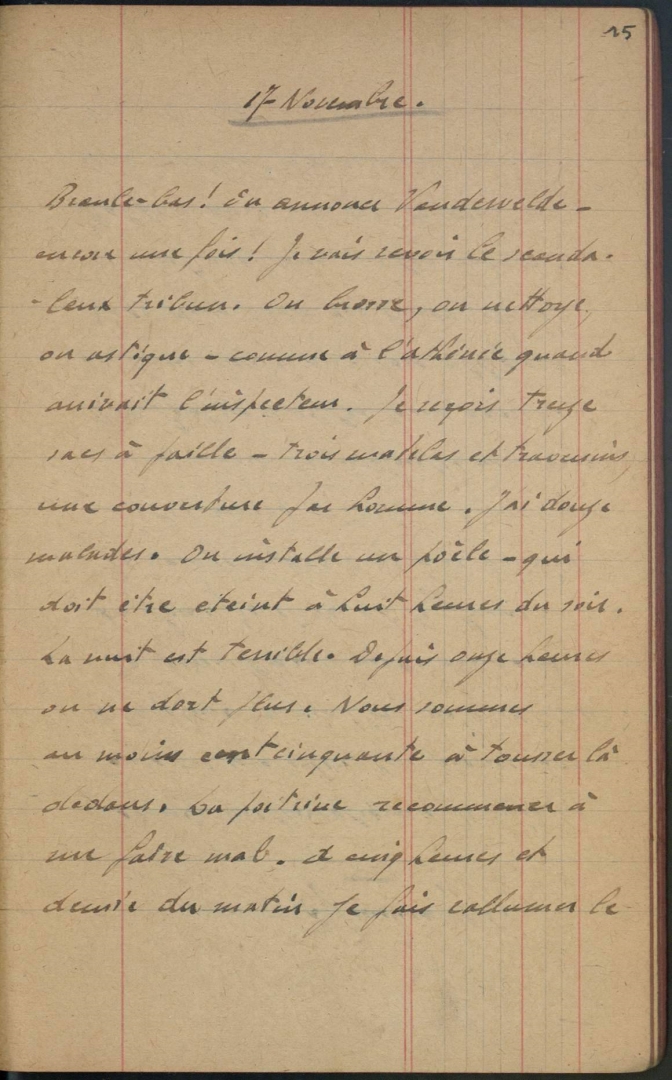 25
17 Novembre.
Branle-bas! On annonce Vandervelde -
encore une fois! Je vais revoir le scanda-
-leux tribun. On brosse, on nettoye,
on astique - comme à l'athénée quand
arrivait l'inspecteur. Je reçois treize
sacs à paille - trois matelas et traversins,
une couverture par homme. J'ai douze
malades. On installe un poêle - qui
doit être éteint à huit heures du soir.
La nuit est terrible. Depuis onze heures
on ne dort plus. Nous sommes
au moins cent cinquante à tousser là
dedans. La poitrine recommence à
me faire mal. A cinq heures et
demie du matin je fais rallumer le